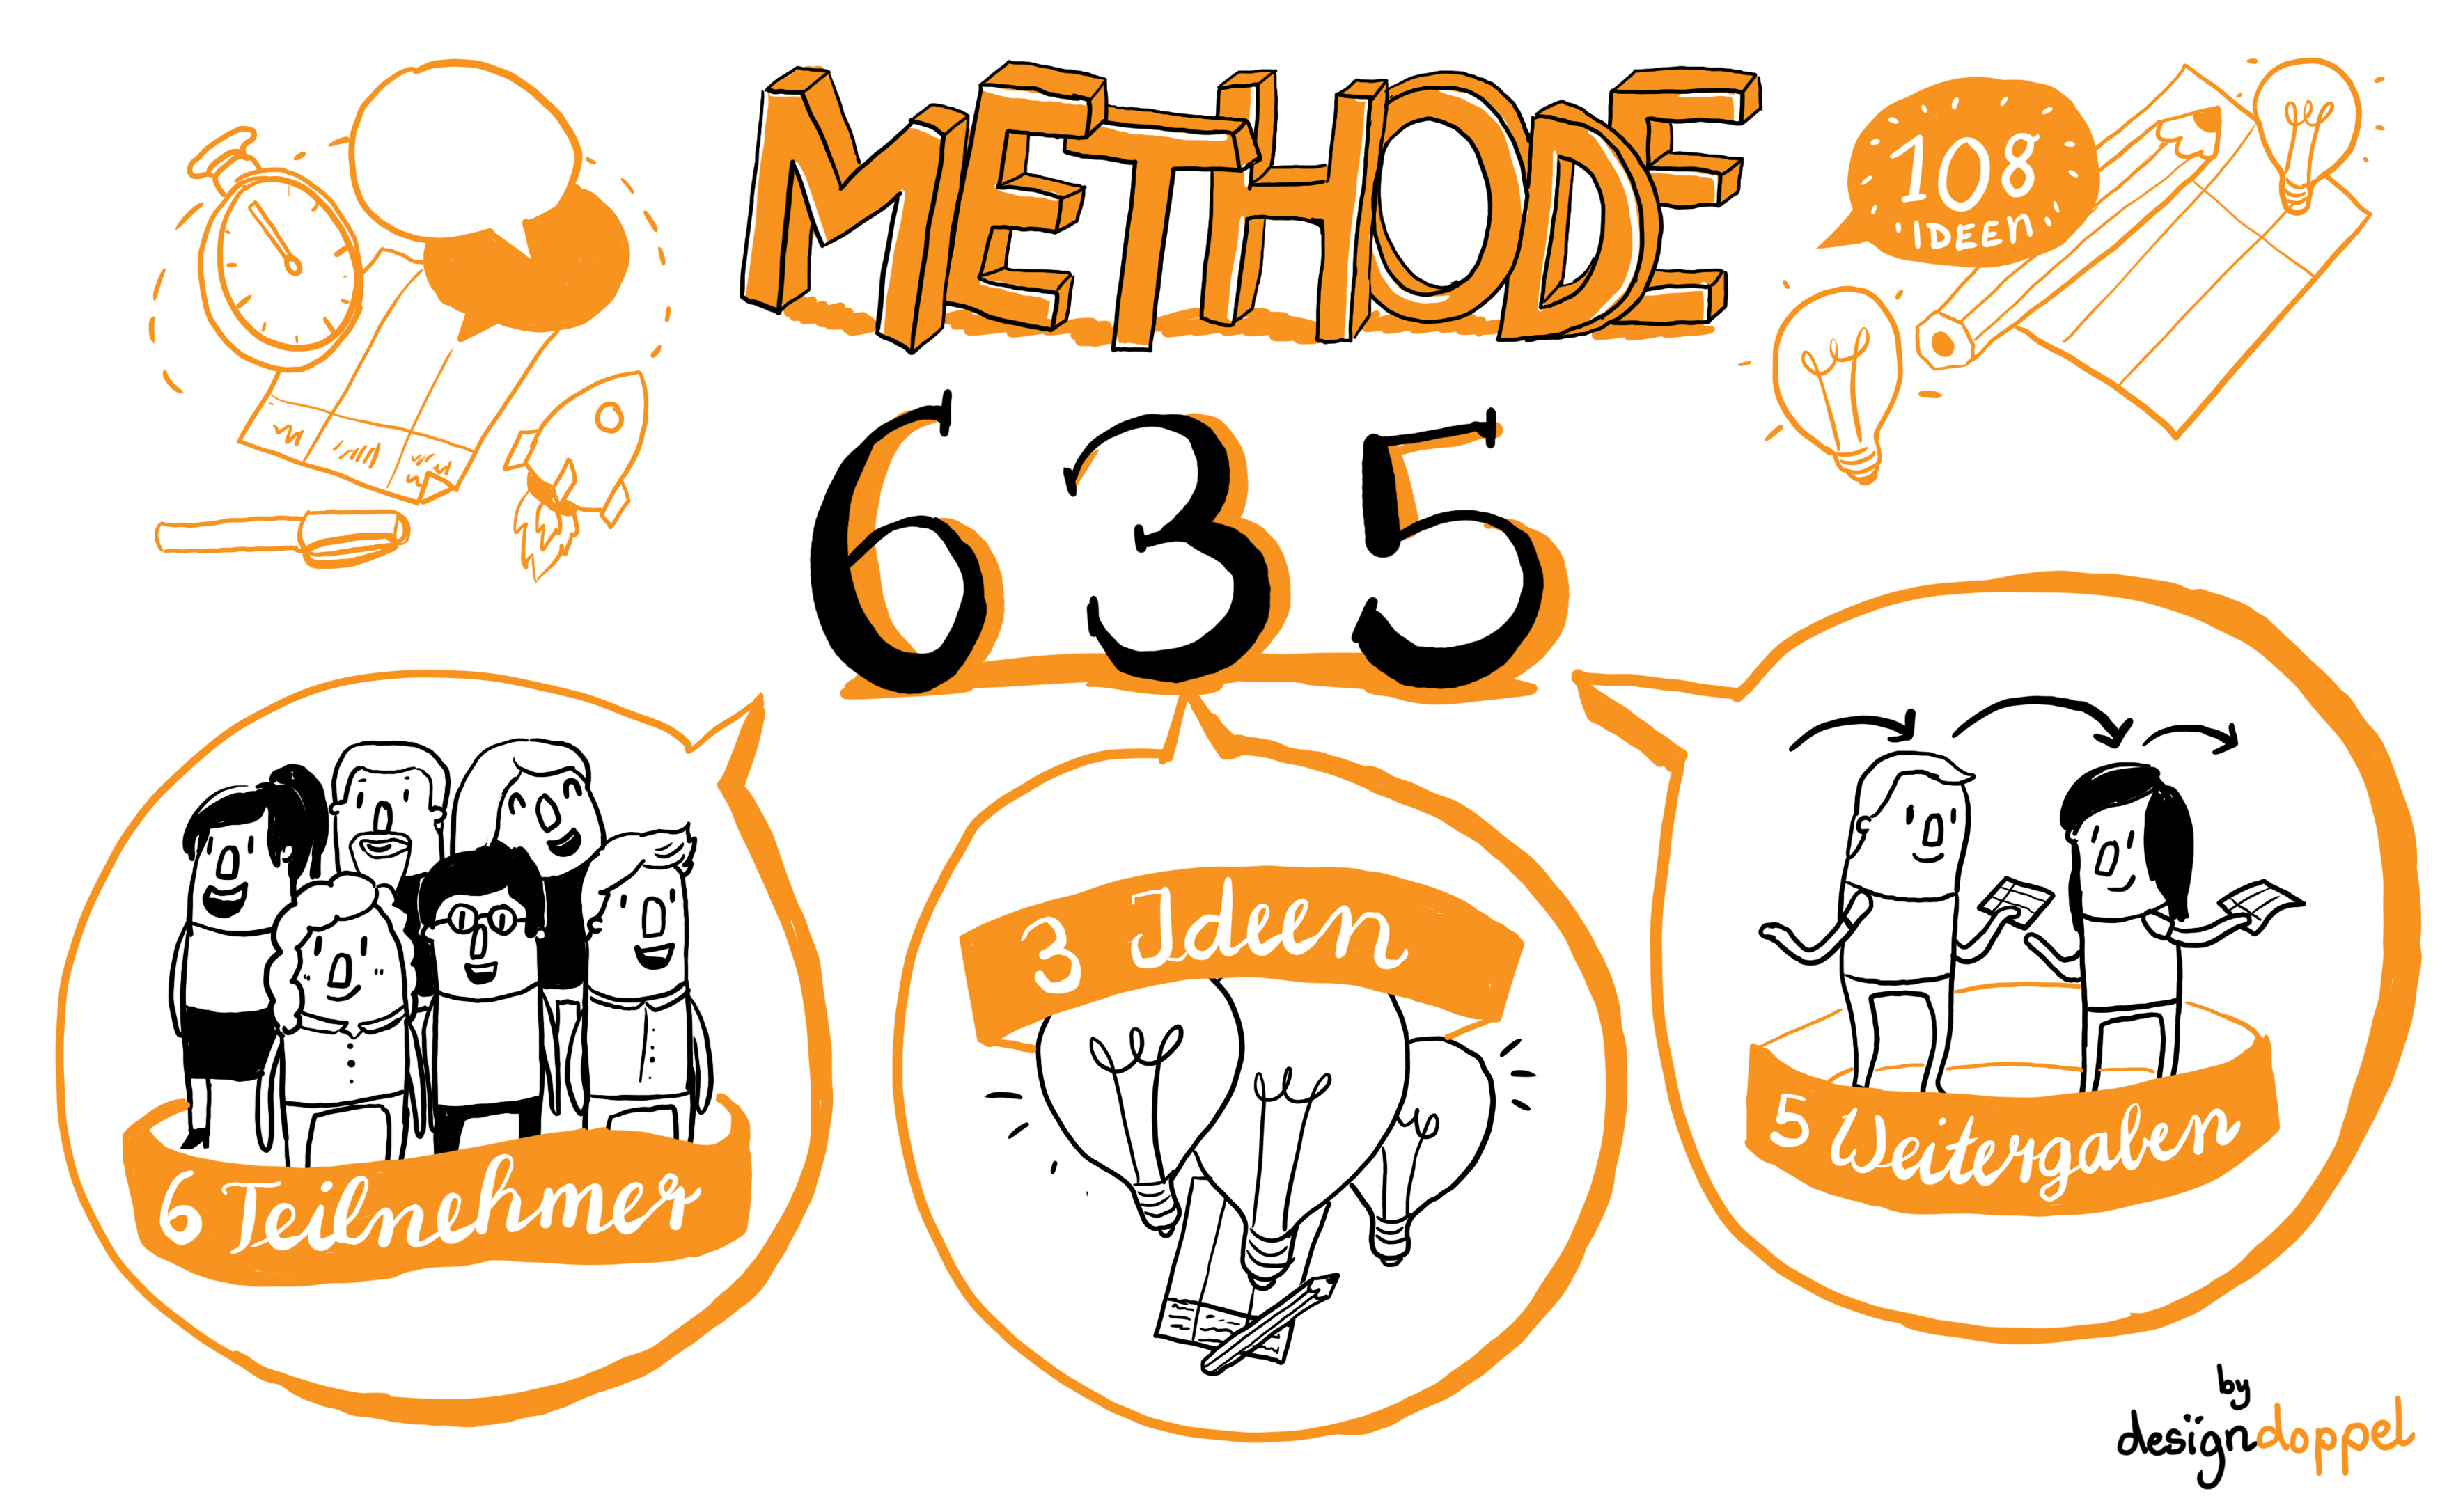 METHODE
635
108
IDEEN
6 Teilnehmer
3 Ideen
5 Weitergaben
by
designdoppel